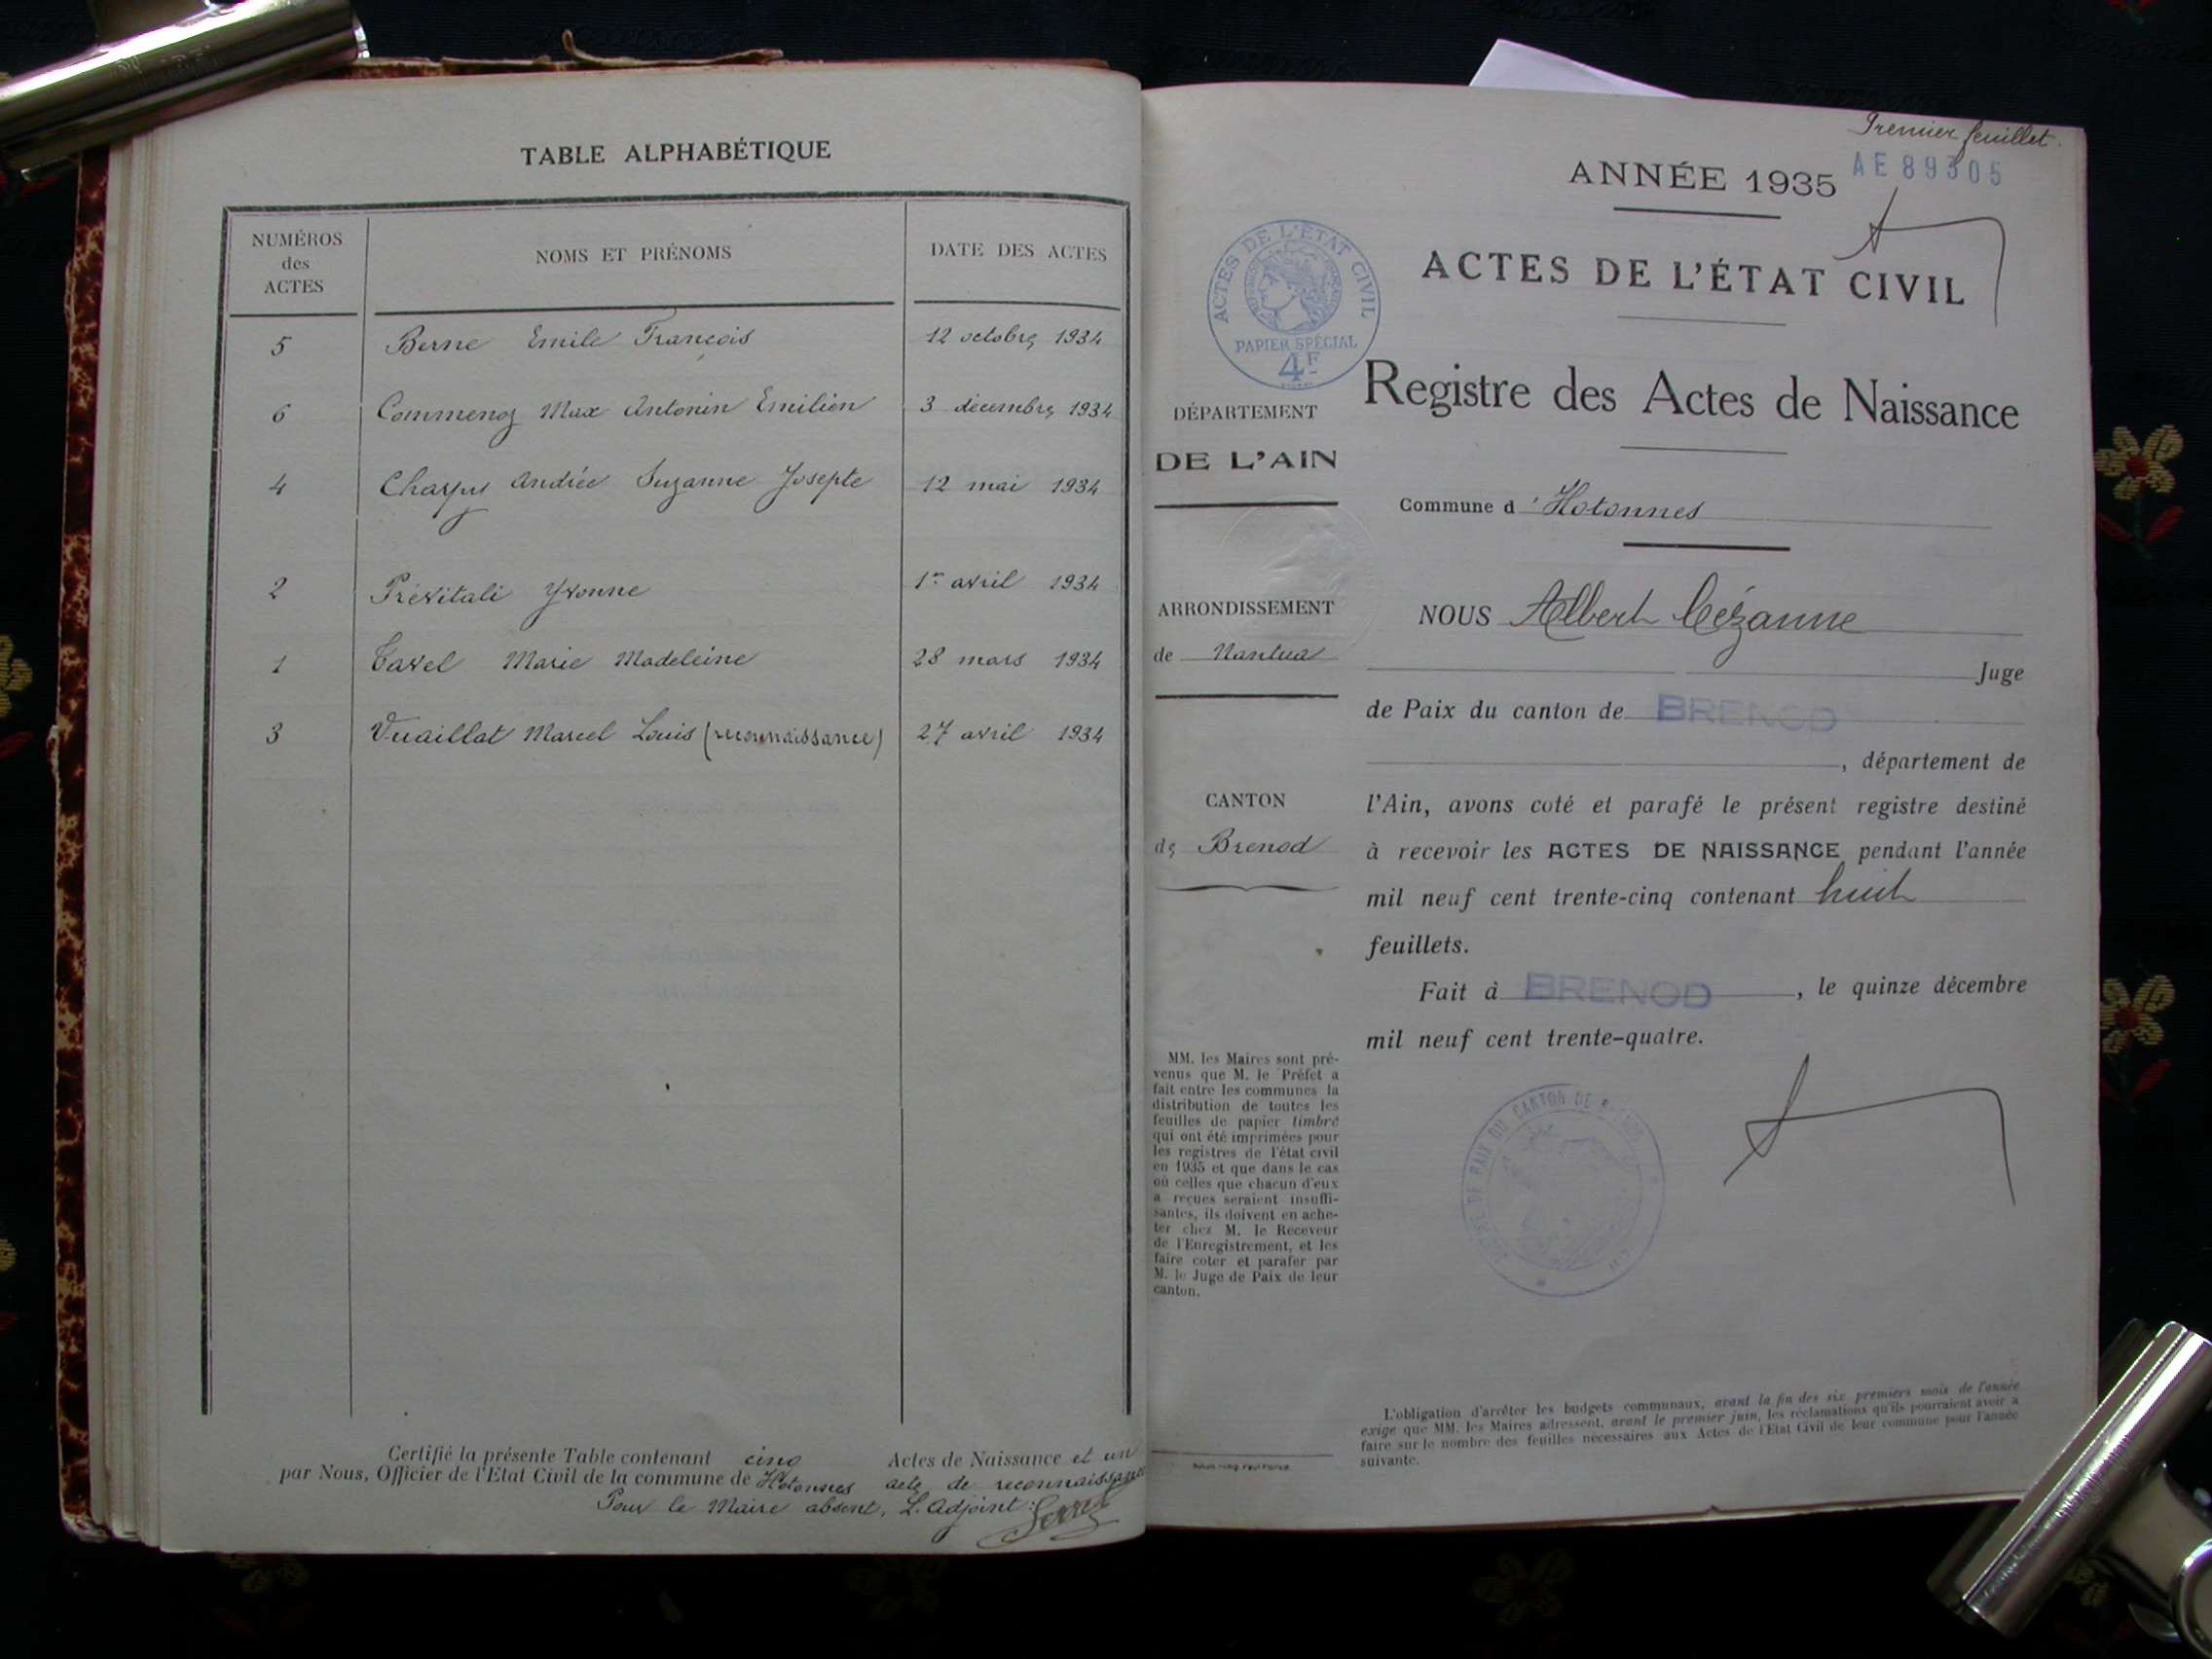 TABLE ALPHABÉTIQUE
NUMÉROS des ACTES
NOMS ET PRÉNOMS
DATE DES ACTES
5 Berne Emile François 12 octobre 1934
6 Commenoz Max Antonin Emilien 3 décembre 1934
4 Charpy Andrée Suzanne Josepte 12 mai 1934
2 Prévitali Yvonne 1er avril 1934
1 Tavel Marie Madeleine 28 mars 1934
3 Vuaillat Marcel Louis (reconnaissance) 27 avril 1934
Certifié la présente Table contenant cinq Actes de Naissance et un
par Nous, Officier de l'Etat Civil de la commune de Hotonnes acte de reconnaissance
Pour le Maire absent, L'adjoint :
Premier feuillet.
ANNÉE 1935
AE 89305
ACTES DE L'ÉTAT CIVIL
PAPIER SPÉCIAL
4F
ACTES DE L'ÉTAT CIVIL
Registre des Actes de Naissance
DÉPARTEMENT
DE L'AIN
Commune d'Hotonnes
ARRONDISSEMENT
de Nantua
CANTON
de Brenod
NOUS Albert Cézanne
Juge
de Paix du canton de BRENOD
, département de
l'Ain, avons coté et parafé le présent registre destiné
à recevoir les ACTES DE NAISSANCE pendant l'année
mil neuf cent trente-cinq contenant huit
feuillets.
Fait à BRENOD, le quinze décembre
mil neuf cent trente-quatre.
MM. les Maires sont pré-
venus que M. le Préfet a
fait entre les communes la
distribution de toutes les
feuilles de papier timbré
qui ont été imprimées pour
les registres de l'état civil
en 1935 et que dans le cas
où celles que chacun d'eux
a reçues seraient insuffi-
santes, ils doivent en ache-
ter chez M. le Receveur
de l'Enregistrement, et les
faire coter et parafer par
M. le Juge de Paix de leur
canton.
DE PAIX DU CANTON DE
L'obligation d'arrêter les budgets communaux, avant la fin des six premiers mois de l'année
exige que MM. les Maires adressent, avant le premier juin, les réclamations qu'ils pourraient avoir à
faire sur le nombre des feuilles nécessaires aux Actes de l'Etat Civil de leur commune pour l'année
suivante.